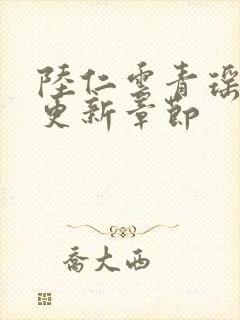 陸仁雲青瑤
更新章節
喬大西